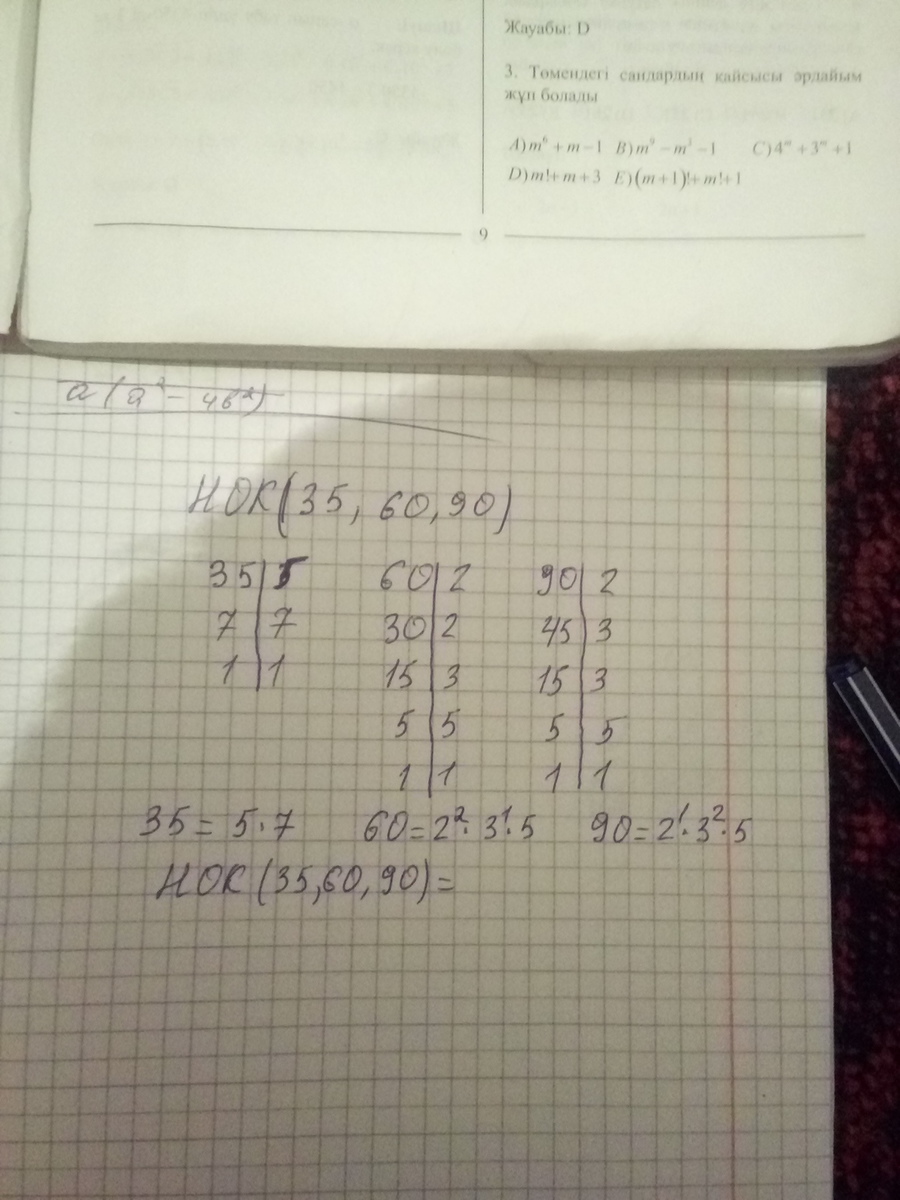 Жауабы: D
3. Төмендегі сандардың қайсысы әрдайым
жұп болады
A) m⁶ + m − 1 B) m⁹ − m³ − 1 C) 4ᵐ + 3ᵐ + 1
D) m! + m + 3 E) (m + 1)! + m! + 1
9
a (a² − 4b²)
НОК(35, 60, 90)
35|5 60|2 90|2
7|7 30|2 45|3
1|1 15|3 15|3
5|5 5|5
1|1 1|1
35 = 5·7 60 = 2²·3¹·5 90 = 2¹·3²·5
НОК(35,60,90) =